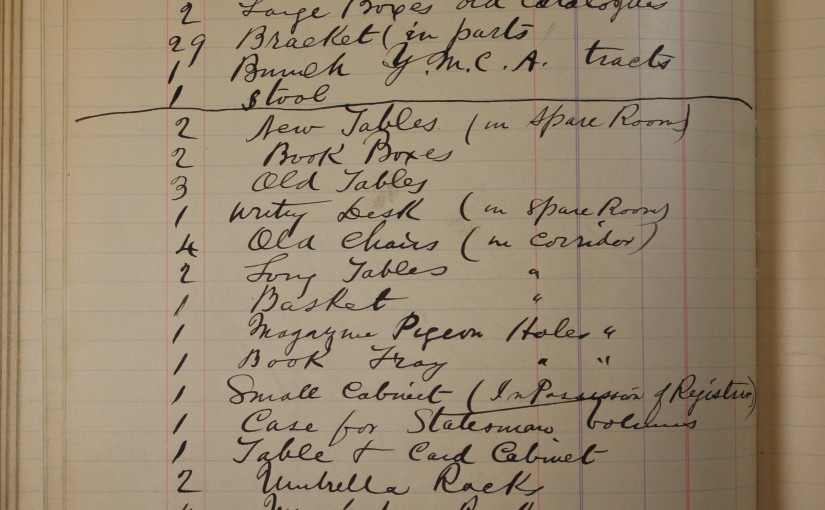 2 Large Boxes old Catalogues
29 Bracket (in parts
1 Bunch Y.M.C.A. tracts
1 Stool
2 New Tables (in Spare Room)
2 Book Boxes
3 Old Tables
1 Writing Desk (in Spare Room)
4 Old Chairs (in Corridor)
2 Long Tables "
1 Basket "
1 Magazine Pigeon Holes "
1 Book Tray " "
1 Small Cabinet (In Possession of Registrar)
1 Case for Statesman volumes
1 Table & Card Cabinet
2 Umbrella Racks